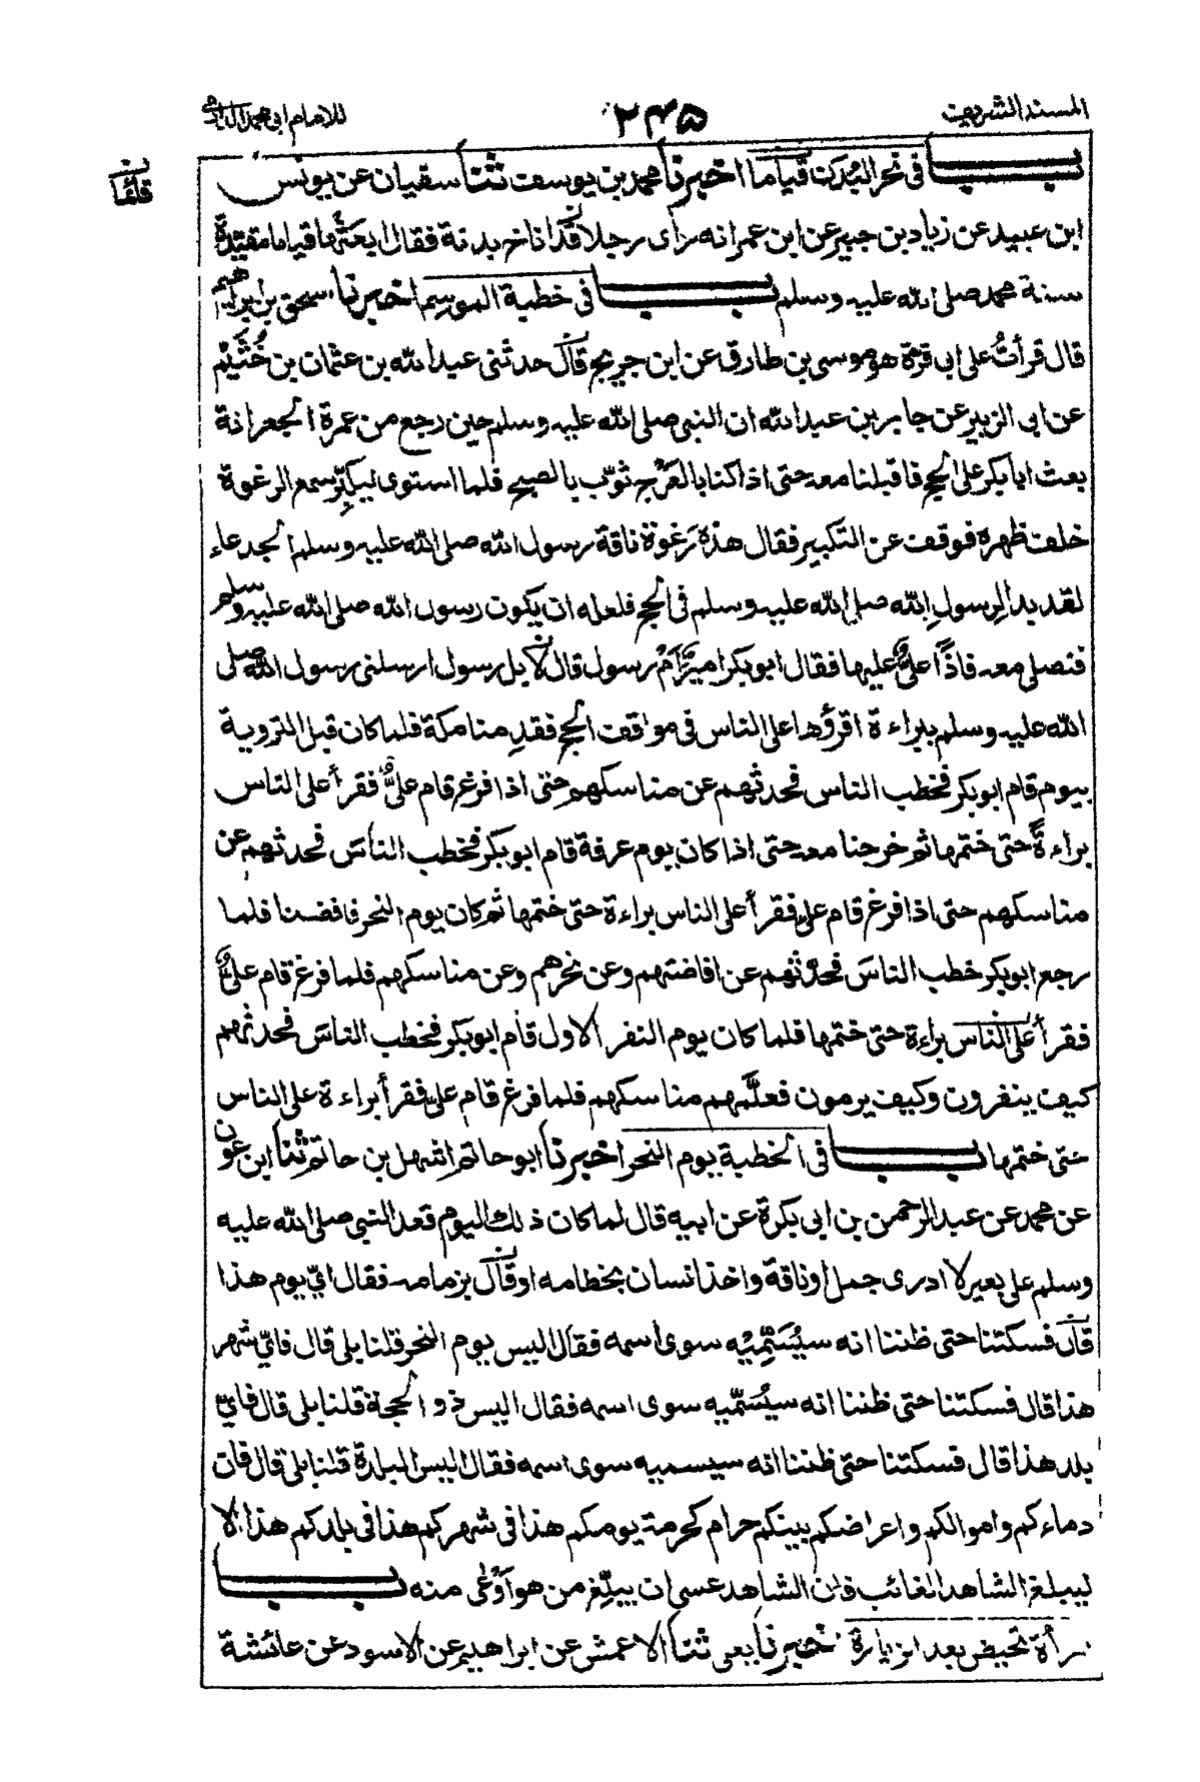 المسند الشريف
٢٤٥
للامام ابى محمد الدارمى
باب فى نحر البدن قياما اخبرنا محمد بن يوسف ثنا سفيان عن يونس
قائما
ابن عبيد عن زياد بن جبير عن ابن عمر انه رأى رجلا قد اناخ بدنة فقال ابعثها قياما مقيّدة
سنة محمد صلى الله عليه وسلم باب فى خطبة الموسِم اخبرنا اسحق بن ابراهيم
قال قرأتُ على ابى قرة هو موسى بن طارق عن ابن جريج قال حدثنى عبد الله بن عثمان بن خُثَيْم
عن ابى الزبير عن جابر بن عبد الله ان النبى صلى الله عليه وسلم حين رجع من عمرة الجعرانة
بعث ابا بكر على الحج فاقبلنا معه حتى اذا كنا بالعَرْج ثوّب بالصبح فلما استوى ليكبّر سمع الرغوة
خلف ظهره فوقف عن التكبير فقال هذه رَغوة ناقة رسول الله صلى الله عليه وسلم الجدعاء
لقد بدا لرسولِ الله صلى الله عليه وسلم فى الحج فلعله ان يكون رسول الله صلى الله عليه وسلم
فنصلى معه فاذًا علىٌّ عليها فقال ابو بكر اميرٌ اَمْ رسول قال لا بل رسول ارسلنى رسول الله صلى
الله عليه وسلم ببراءة اقرؤها على الناس فى مواقف الحج فقدِمنا مكة فلما كان قبل التروية
بيوم قام ابو بكر فخطب الناس فحدثهم عن مناسكهم حتى اذا فرغ قام علىٌّ فقرأ على الناس
براءةً حتى ختمها ثم خرجنا معه حتى اذا كان يوم عرفة قام ابو بكر فخطب الناسَ فحدثهم عن
مناسكهم حتى اذا فرغ قام علىٌّ فقرأ على الناس براءة حتى ختمها ثم كان يوم النحر فافضنا فلما
رجع ابو بكر خطب الناسَ فحدّثهم عن افاضتهم وعن نحرهم وعن مناسكهم فلما فرغ قام علىٌّ
فقرأ على الناس براءة حتى ختمها فلما كان يوم النفر الاول قام ابو بكر فخطب الناسَ فحدثهم
كيف ينفرون وكيف يرمون فعلّمهم مناسكهم فلما فرغ قام علىّ فقرأ براءة على الناس
حتى ختمها باب فى الخطبة يوم النحر اخبرنا ابو حاتم اشهل بن حاتم ثنا ابن عون
عن محمد عن عبد الرحمن بن ابى بكرة عن ابيه قال لما كان ذلك اليوم قعد النبي صلى الله عليه
وسلم على بعير لا ادرى جمل او ناقة واخذ انسان بخطامه او قال بزمامه فقال اىّ يوم هذا
قال فسكتنا حتى ظننا انه سيُسَمِّيْه سوى اسمه فقال اليس يوم النحر قلنا بلى قال فاىّ شهر
هذا قال فسكتنا حتى ظننا انه سيُسَمّيه سوى اسمه فقال اليس ذو الحجة قلنا بلى قال فاىّ
بلد هذا قال فسكتنا حتى ظننا انه سيسميه سوى اسمه فقال اليس البلدة قلنا بلى قال فان
دماءكم واموالكم واعراضكم بينكم حرام كحرمة يومكم هذا فى شهركم هذا فى بلدكم هذا الا
ليبلغ الشاهد الغائب فان الشاهد عسى ان يبلّغ من هو اَوْعٰى منه باب
المرأة تحيض بعد الزيارة اخبرنا يعلى ثنا الاعمش عن ابراهيم عن الاسود عن عائشة